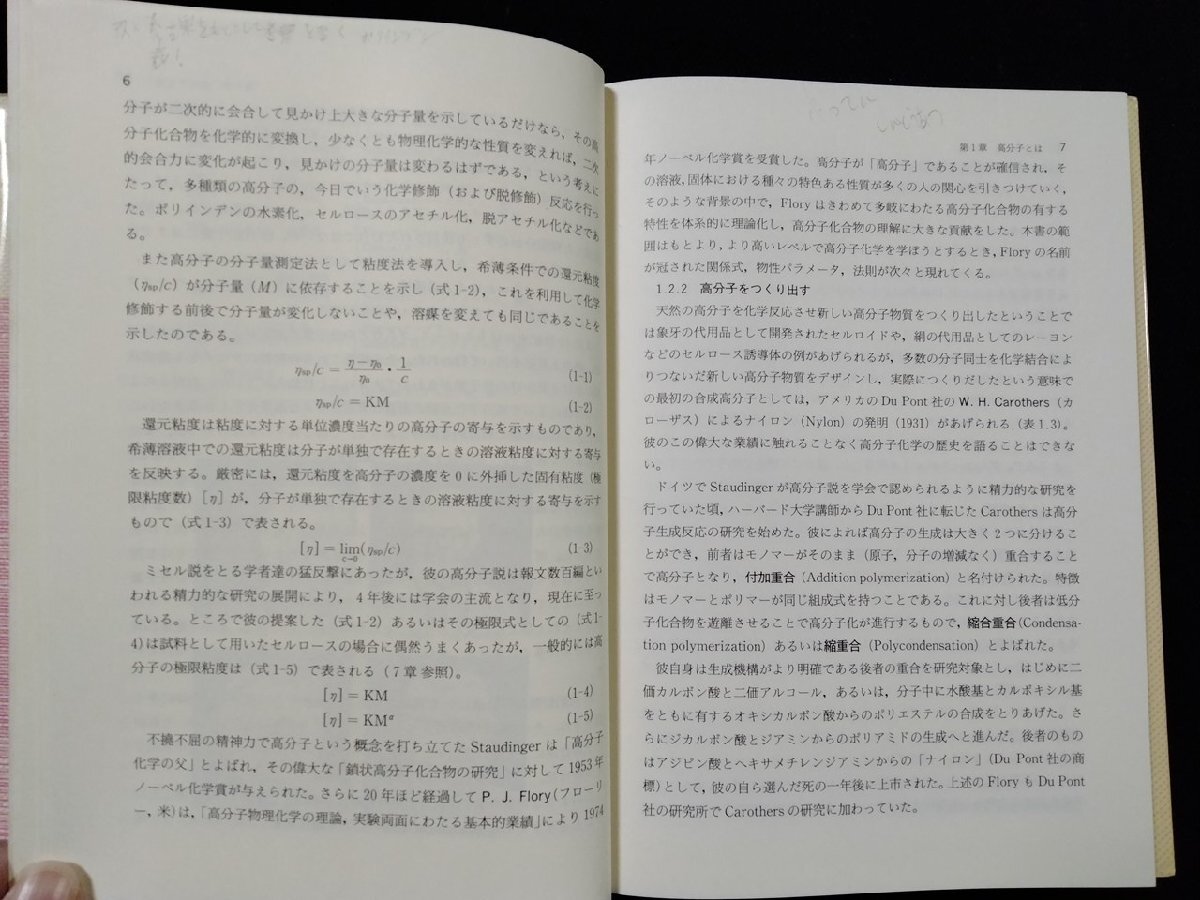 6
分子が二次的に会合して見かけ上大きな分子量を示しているだけなら，その高
分子化合物を化学的に変換し，少なくとも物理化学的な性質を変えれば，二次
的会合力に変化が起こり，見かけの分子量は変わるはずである，という考えに
たって，多種類の高分子の，今日でいう化学修飾（および脱修飾）反応を行っ
た。ポリインデンの水素化，セルロースのアセチル化，脱アセチル化などであ
る。
また高分子の分子量測定法として粘度法を導入し，希薄条件での還元粘度
（ηsp/c）が分子量（M）に依存することを示し（式1-2），これを利用して化学
修飾する前後で分子量が変化しないことや，溶媒を変えても同じであることを
示したのである。
ηsp/c = (η−η₀)/η₀ ・ 1/c (1-1)
ηsp/c = KM (1-2)
還元粘度は粘度に対する単位濃度当たりの高分子の寄与を示すものであり，
希薄溶液中での還元粘度は分子が単独で存在するときの溶液粘度に対する寄与
を反映する。厳密には，還元粘度を高分子の濃度を0に外挿した固有粘度（極
限粘度数）［η］が，分子が単独で存在するときの溶液粘度に対する寄与を示す
もので（式1-3）で表される。
［η］= lim(ηsp/c) (1-3)
c→0
ミセル説をとる学者達の猛反撃にあったが，彼の高分子説は報文数百編とい
われる精力的な研究の展開により，4年後には学会の主流となり，現在に至っ
ている。ところで彼の提案した（式1-2）あるいはその極限式としての（式1-
4）は試料として用いたセルロースの場合に偶然うまくあったが，一般的には高
分子の極限粘度は（式1-5）で表される（7章参照）。
［η］= KM (1-4)
［η］= KMᵅ (1-5)
不撓不屈の精神力で高分子という概念を打ち立てた Staudinger は「高分子
化学の父」とよばれ，その偉大な「鎖状高分子化合物の研究」に対して1953年
ノーベル化学賞が与えられた。さらに20年ほど経過して P. J. Flory（フローリ
ー，米）は，「高分子物理化学の理論，実験両面にわたる基本的業績」により1974
第1章 高分子とは 7
年ノーベル化学賞を受賞した。高分子が「高分子」であることが確信され，そ
の溶液，固体における種々の特色ある性質が多くの人の関心を引きつけていく，
そのような背景の中で，Flory はきわめて多岐にわたる高分子化合物の有する
特性を体系的に理論化し，高分子化合物の理解に大きな貢献をした。本書の範
囲はもとより，より高いレベルで高分子化学を学ぼうとするとき，Flory の名前
が冠された関係式，物性パラメータ，法則が次々と現れてくる。
1.2.2 高分子をつくり出す
天然の高分子を化学反応させ新しい高分子物質をつくり出したということで
は象牙の代用品として開発されたセルロイドや，絹の代用品としてのレーヨン
などのセルロース誘導体の例があげられるが，多数の分子同士を化学結合によ
りつないだ新しい高分子物質をデザインし，実際につくりだしたという意味で
の最初の合成高分子としては，アメリカの Du Pont 社の W. H. Carothers（カ
ローザス）によるナイロン（Nylon）の発明（1931）があげられる（表1.3）。
彼のこの偉大な業績に触れることなく高分子化学の歴史を語ることはできな
い。
ドイツで Staudinger が高分子説を学会で認められるように精力的な研究を
行っていた頃，ハーバード大学講師から Du Pont 社に転じた Carothers は高分
子生成反応の研究を始めた。彼によれば高分子の生成は大きく2つに分けるこ
とができ，前者はモノマーがそのまま（原子，分子の増減なく）重合すること
で高分子となり，付加重合（Addition polymerization）と名付けられた。特徴
はモノマーとポリマーが同じ組成式を持つことである。これに対し後者は低分
子化合物を遊離させることで高分子化が進行するもので，縮合重合（Condensa-
tion polymerization）あるいは縮重合（Polycondensation）とよばれた。
彼自身は生成機構がより明確である後者の重合を研究対象とし，はじめに二
価カルボン酸と二価アルコール，あるいは，分子中に水酸基とカルボキシル基
をともに有するオキシカルボン酸からのポリエステルの合成をとりあげた。さ
らにジカルボン酸とジアミンからのポリアミドの生成へと進んだ。後者のもの
はアジピン酸とヘキサメチレンジアミンからの「ナイロン」（Du Pont 社の商
標）として，彼の自ら選んだ死の一年後に上市された。上述の Flory も Du Pont
社の研究所で Carothers の研究に加わっていた。